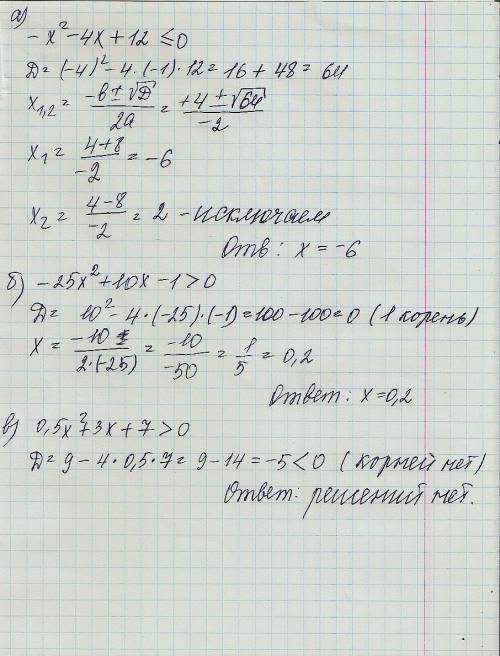 а)
-x² - 4x + 12 ≤ 0
D = (-4)² - 4·(-1)·12 = 16 + 48 = 64
x₁,₂ = (-b ± √D)/2a = (+4 ± √64)/-2
x₁ = (4+8)/-2 = -6
x₂ = (4-8)/-2 = 2 - исключаем
Отв: x = -6
б) -25x² + 10x - 1 > 0
D = 10² - 4·(-25)·(-1) = 100 - 100 = 0 (1 корень)
x = (-10 ±)/2·(-25) = -10/-50 = 1/5 = 0,2
Ответ: x = 0,2
в) 0,5x² + 3x + 7 > 0
D = 9 - 4·0,5·7 = 9 - 14 = -5 < 0 (корней нет)
Ответ: решений нет.